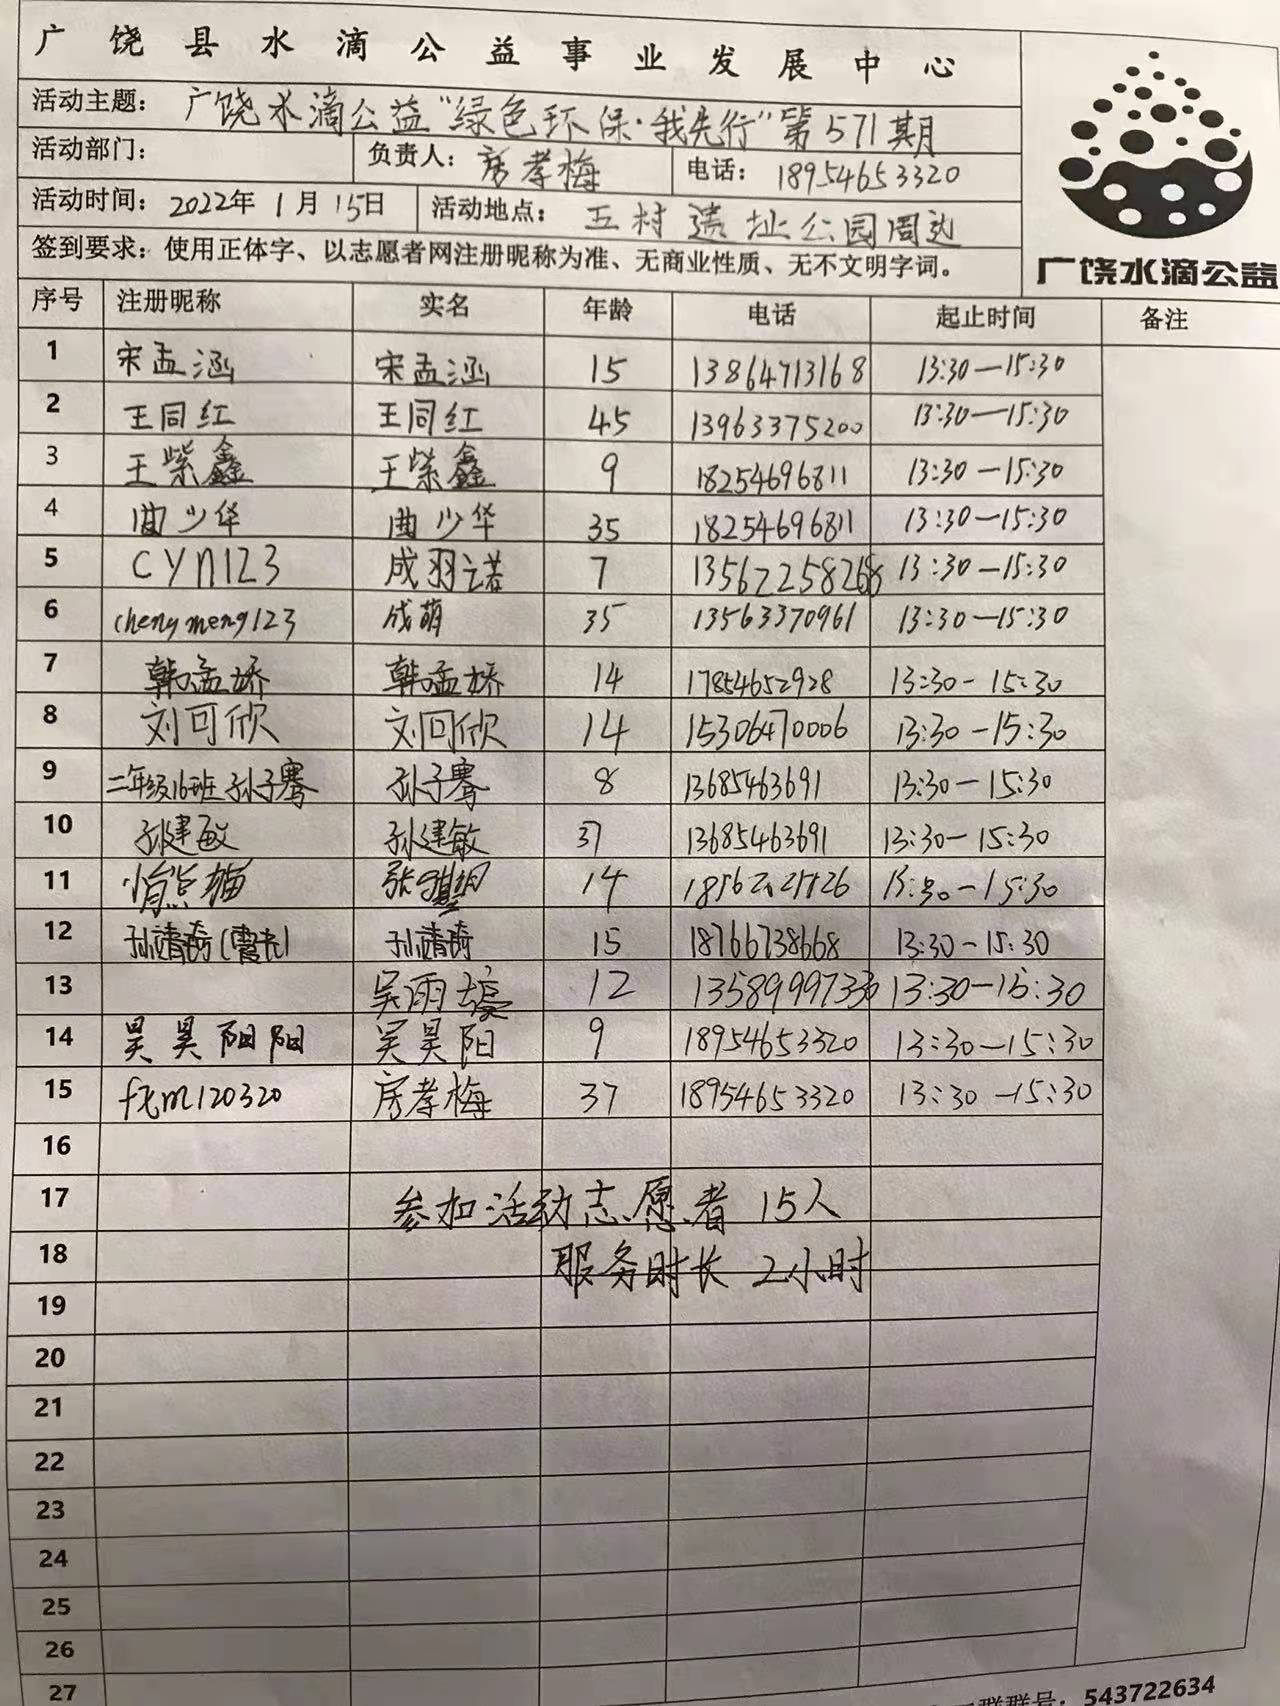 广饶县水滴公益事业发展中心
活动主题：广饶水滴公益“绿色环保·我先行”第571期
活动部门： 负责人：房孝梅 电话：18954653320
活动时间：2022年1月15日 活动地点：五村遗址公园周边
签到要求：使用正体字、以志愿者网注册昵称为准、无商业性质、无不文明字词。
广饶水滴公益
序号 注册昵称 实名 年龄 电话 起止时间 备注
1 宋孟涵 宋孟涵 15 13864713168 13:30—15:30
2 王同红 王同红 45 13963375200 13:30—15:30
3 王紫鑫 王紫鑫 9 18254696811 13:30—15:30
4 曲少华 曲少华 35 18254696811 13:30—15:30
5 CYN123 成羽诺 7 13562258268 13:30—15:30
6 chengmeng123 成萌 35 13563370961 13:30—15:30
7 韩孟娇 韩孟娇 14 17854652928 13:30-15:30
8 刘可欣 刘可欣 14 15306470006 13:30-15:30
9 二年级16班孙子骞 孙子骞 8 13685463691 13:30-15:30
10 孙建敏 孙建敏 37 13685463691 13:30-15:30
11 14 13:30-15:30
12 孙靖琦 孙靖琦 15 18766738668 13:30-15:30
13 吴雨 12 13:30-15:30
14 昊昊阳阳 吴昊阳 9 18954653320 13:30—15:30
15 fxm120320 房孝梅 37 18954653320 13:30—15:30
16
17 参加活动志愿者15人
18 服务时长2小时
19
20
21
22
23
24
25
26
27
群群号：543722634